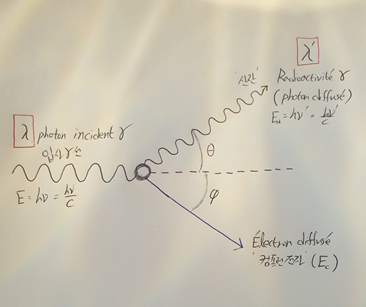 λ'
'산란'
Radioactivité γ
(photon diffusé)
λ photon incident γ
입사γ선
θ
E = hν = hν/c
φ
Électron diffusé
'컴프턴전자' (Ec)